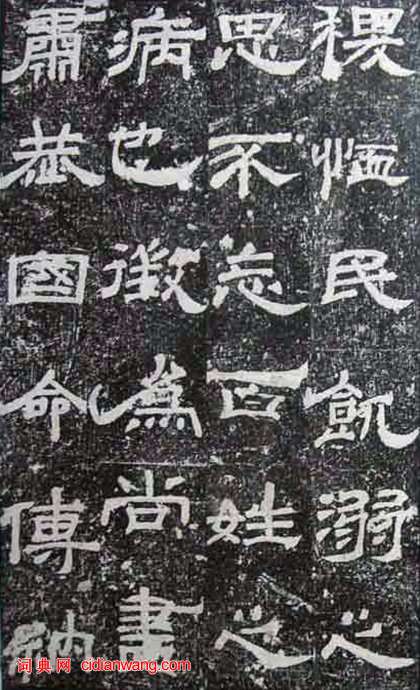 稷恤民飢溺之
思不忘百姓之
病也徵為尚書
肅恭國命傅納
词典网 cidianwang.com